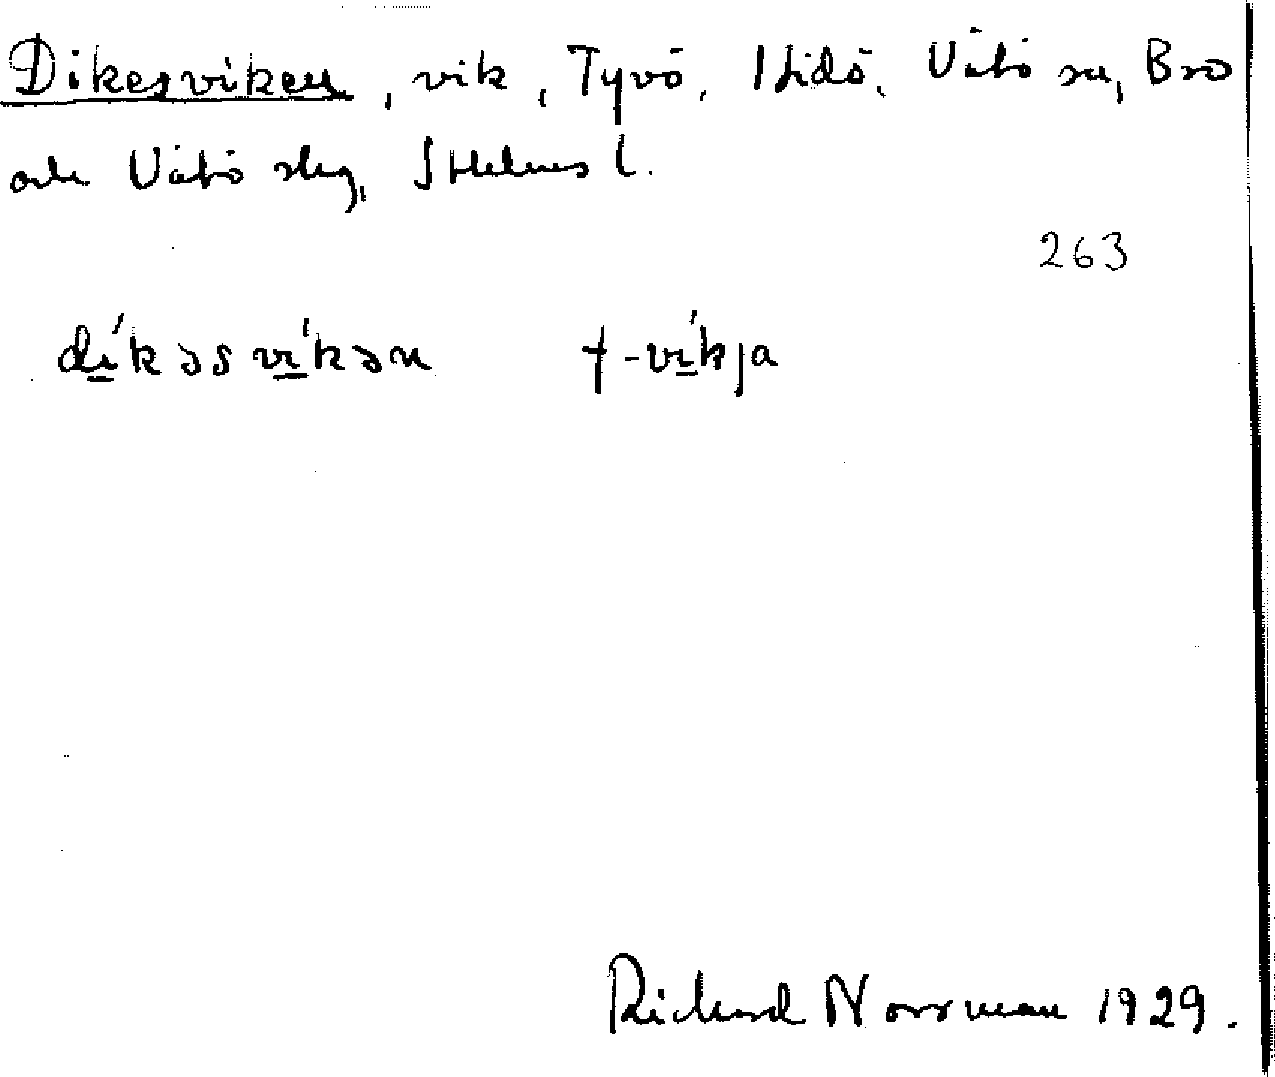 Dikesviken, vik, Tyvö, Hidö, Vätö sn, Bro
och Vätö skg, Sthlms l.
263
díkəsvíkən †-víkja
Richard Norrman 1929.